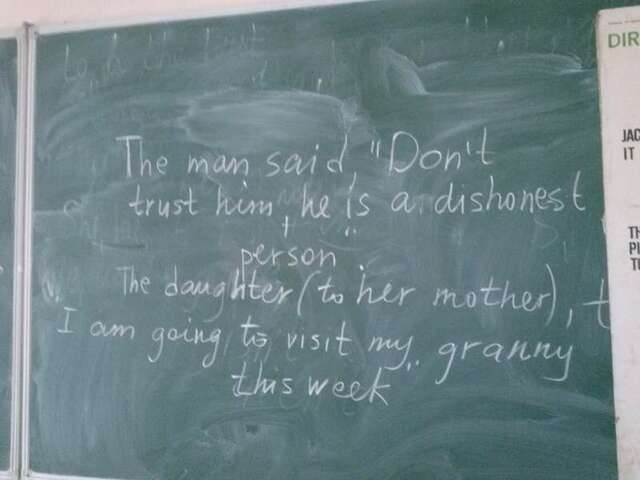 The man said, "Don't
trust him he is a dishonest
person.
The daughter (to her mother), t
I am going to visit my granny
this week
DIR
JAC
IT
TH
PU
TU